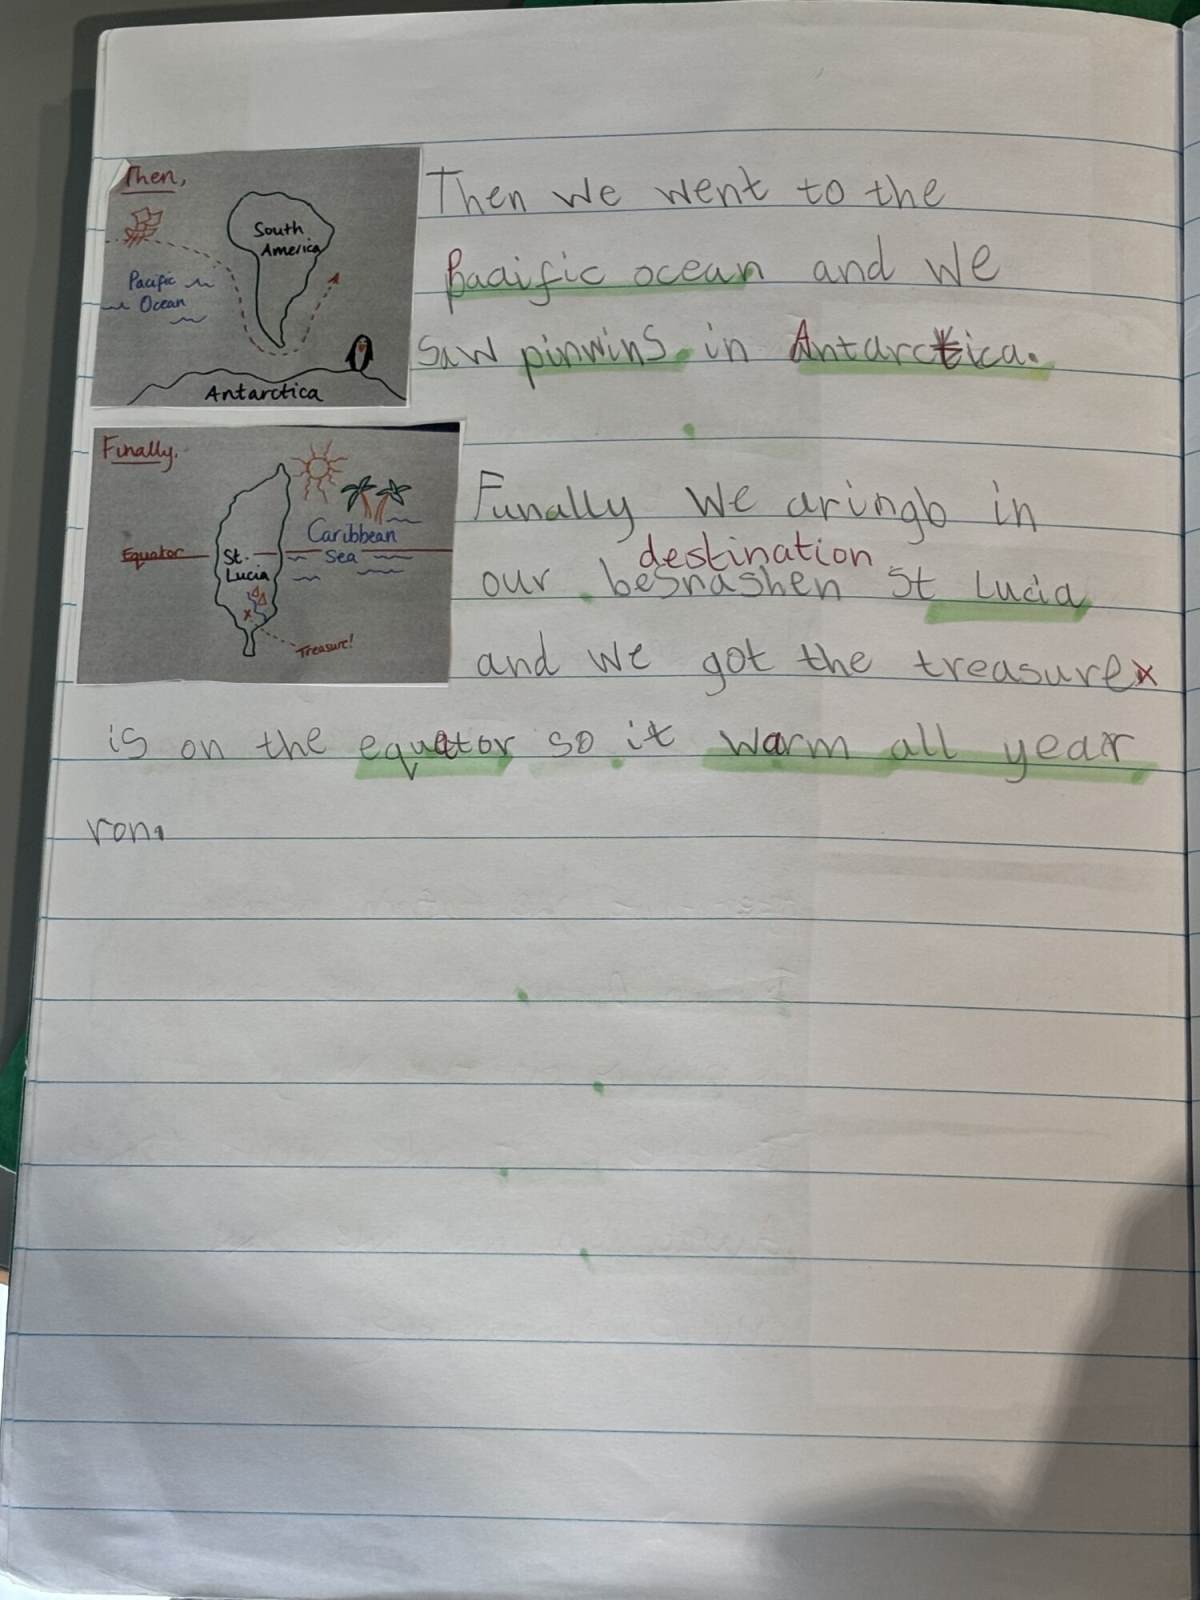 Then,
South
America
Pacific
Ocean
Antarctica
Then we went to the
Pacific ocean and we
saw pinwins in Antarctica.
Finally,
Caribbean
Sea
Equator
St.
Lucia
Treasure!
Funally we aringb in
destination
our besnashen St Lucia
and we got the treasure x
is on the equator so it warm all year
ron.